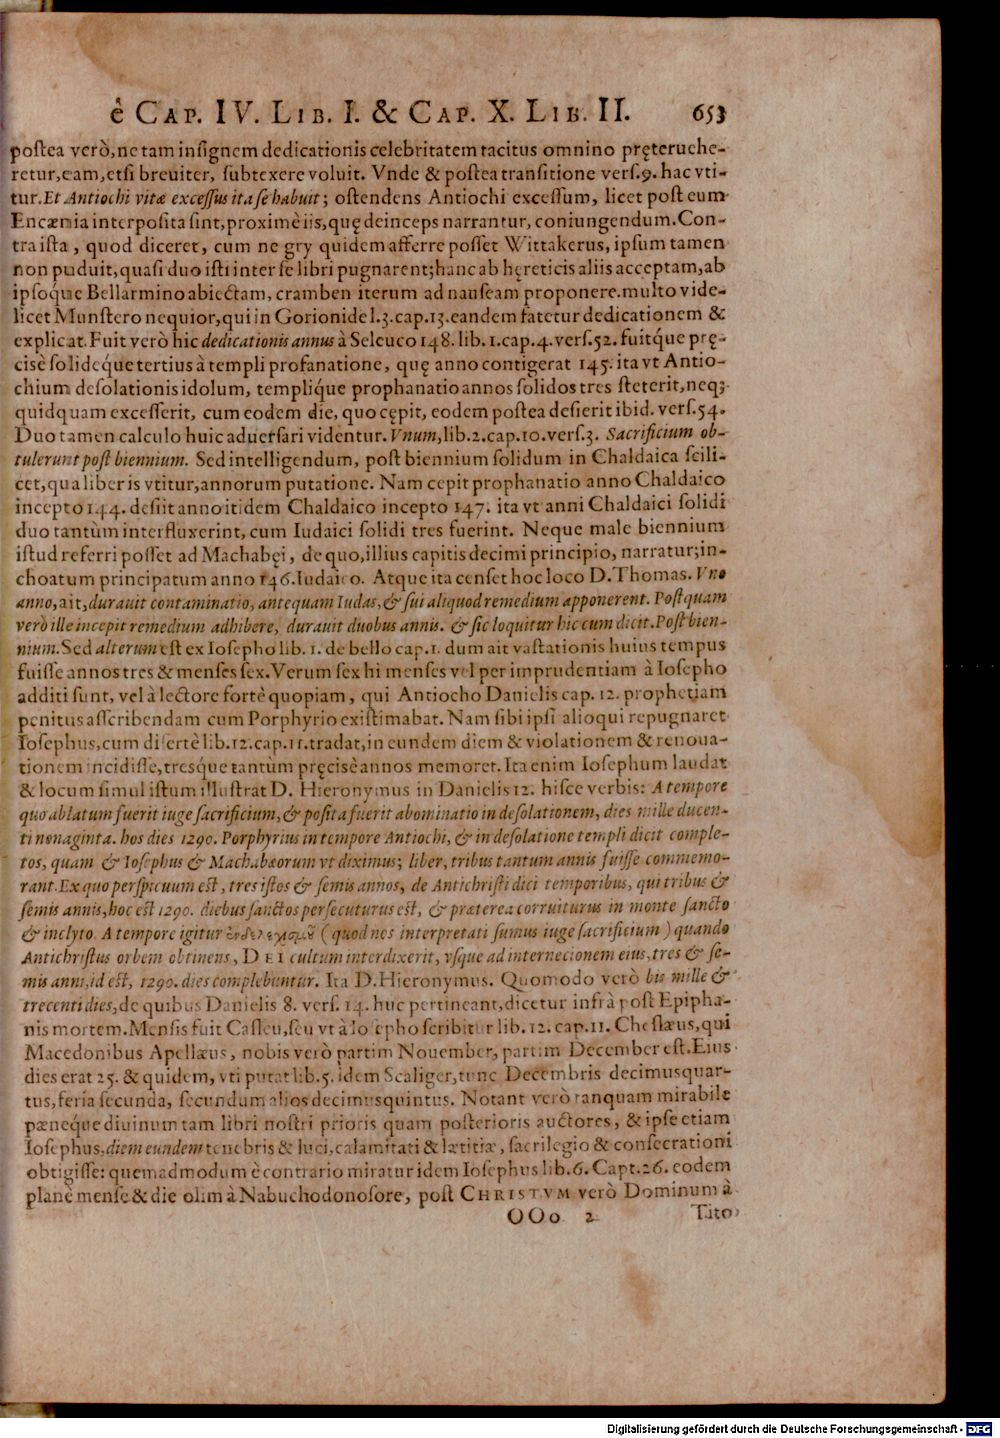 è CAP. IV. LIB. I. & CAP. X. LIB. II. 653
postea verò, ne tam insignem dedicationis celebritatem tacitus omnino pręteruehe-
retur, eam, etsi breuiter, subtexere voluit. Vnde & postea transitione vers. 9. hac vti-
tur. Et Antiochi vitæ excessus ita se habuit; ostendens Antiochi excessum, licet post eum
Encænia interposita sint, proximè iis, quę deinceps narrantur, coniungendum. Con-
tra ista, quod diceret, cum ne gry quidem afferre posset Wittakerus, ipsum tamen
non puduit, quasi duo isti inter se libri pugnarent; hanc ab hęreticis aliis acceptam, ab
ipsoq́ue Bellarmino abiectam, cramben iterum ad nauseam proponere. multo vide-
licet Munstero nequior, qui in Gorionide l. 3. cap. 13. eandem fatetur dedicationem &
explicat. Fuit verò hic dedicationis annus à Seleuco 148. lib. 1. cap. 4. vers. 52. fuitq́ue prę-
cisè solideq́ue tertius à templi profanatione, quę anno contigerat 145. ita vt Antio-
chium desolationis idolum, templiq́ue prophanatio annos solidos tres steterit, neq;
quidquam excesserit, cum eodem die, quo cępit, eodem postea desierit ibid. vers. 54.
Duo tamen calculo huic aduersari videntur. Vnum, lib. 2. cap. 10. vers. 3. Sacrificium ob-
tulerunt post biennium. Sed intelligendum, post biennium solidum in Chaldaica scili-
cet, qua liber is vtitur, annorum putatione. Nam cepit prophanatio anno Chaldaico
incepto 144. desiit anno itidem Chaldaico incepto 147. ita vt anni Chaldaici solidi
duo tantùm interfluxerint, cum Iudaici solidi tres fuerint. Neque male biennium
istud referri posset ad Machabęi, de quo, illius capitis decimi principio, narratur; in-
choatum principatum anno 146. Iudaico. Atque ita censet hoc loco D. Thomas. Vno
anno, ait, durauit contaminatio, antequam Iudas, & sui aliquod remedium apponerent. Postquam
verò ille incepit remedium adhibere, durauit duobus annis. & sic loquitur hic cum dicit. Post bien-
nium. Sed alterum est ex Iosepho lib. 1. de bello cap. 1. dum ait vastationis huius tempus
fuisse annos tres & menses sex. Verum sex hi menses vel per imprudentiam à Iosepho
additi sunt, vel à lectore fortè quopiam, qui Antiocho Danielis cap. 12. prophetiam
penitus asscribendam cum Porphyrio existimabat. Nam sibi ipsi alioqui repugnaret
Iosephus, cum disertè lib. 12. cap. 11. tradat, in eundem diem & violationem & renoua-
tionem incidisse, tresq́ue tantùm pręcisè annos memoret. Ita enim Iosephum laudat
& locum simul istum illustrat D. Hieronymus in Danielis 12. hisce verbis: A tempore
quo ablatum fuerit iuge sacrificium, & posita fuerit abominatio in desolationem, dies mille ducen-
ti nonaginta. hos dies 1290. Porphyrius in tempore Antiochi, & in desolatione templi dicit comple-
tos, quam & Iosephus & Machabæorum vt diximus; liber, tribus tantum annis fuisse commemo-
rant. Ex quo perspicuum est, tres istos & semis annos, de Antichristi dici temporibus, qui tribus &
semis annis, hoc est 1290. diebus sanctos persecuturus est, & præterea corruiturus in monte sancto
& inclyto. A tempore igitur ἐνδελεχισμοῦ (quod nos interpretati sumus iuge sacrificium) quando
Antichristus orbem obtinens, DEI cultum interdixerit, vsque ad internecionem eius, tres & se-
mis anni, id est, 1290. dies complebuntur. Ita D. Hieronymus. Quomodo verò bis mille &
trecenti dies, de quibus Danielis 8. vers. 14. huc pertineant, dicetur infrà post Epipha-
nis mortem. Mensis fuit Casleu, seu vt à Iosepho scribitur lib. 12. cap. 11. Cheslæus, qui
Macedonibus Apellæus, nobis verò partim Nouember, partim December est. Eius
dies erat 25. & quidem, vti putat lib. 5. idem Scaliger, tunc Decembris decimusquar-
tus, feria secunda, secundum alios decimusquintus. Notant verò tanquam mirabile
pæneque diuinum tam libri nostri prioris quam posterioris auctores, & ipse etiam
Iosephus, diem eundem tenebris & luci, calamitati & lætitiæ, sacrilegio & consecrationi
obtigisse: quemadmodum è contrario miratur idem Iosephus lib. 6. Capt. 26. eodem
planè mense & die olim à Nabuchodonosore, post CHRISTVM verò Dominum à
OOo 2 Tito
Digitalisierung gefördert durch die Deutsche Forschungsgemeinschaft - DFG